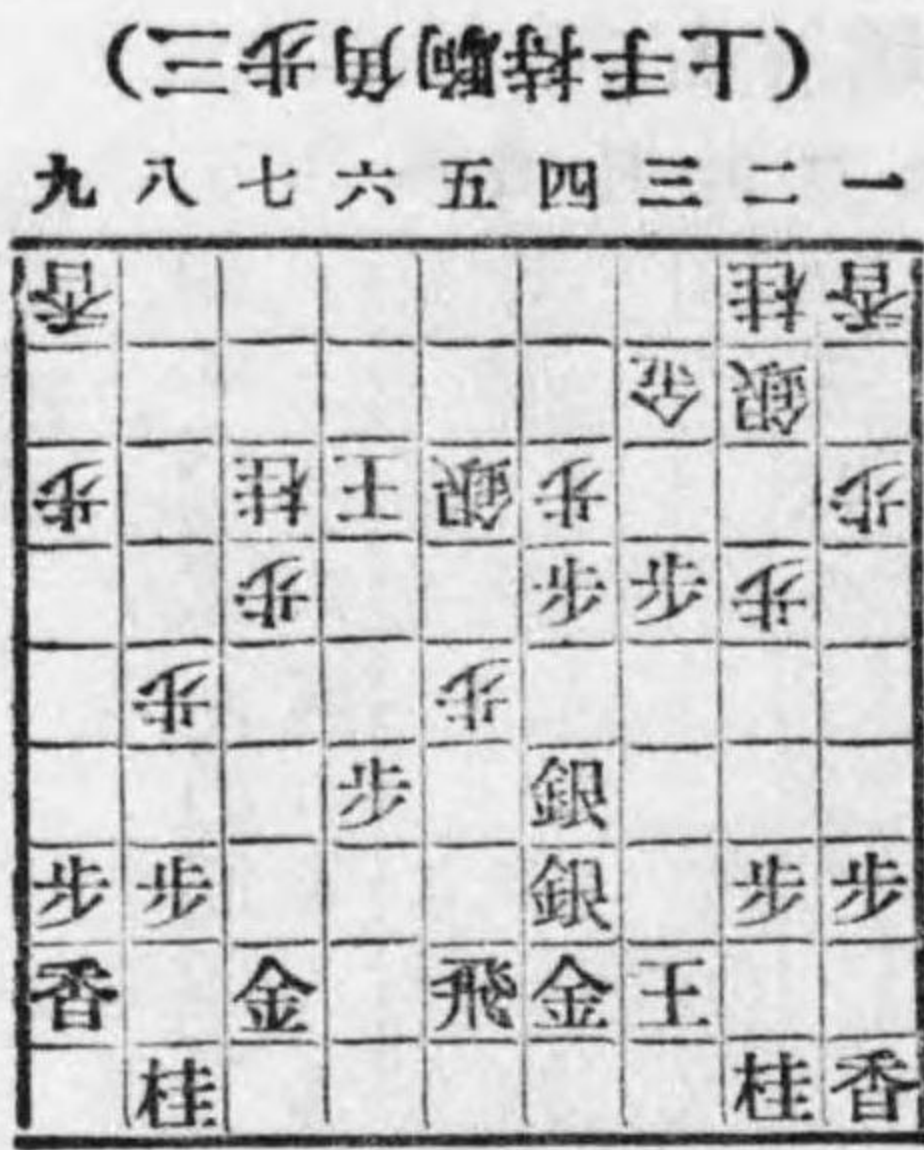 （上手持駒角歩三）
九 八 七 六 五 四 三 二 一
香 桂 香
金 銀
歩 桂 王 銀 歩 歩
歩 歩 歩 歩
歩 歩
歩 銀
歩 歩 銀 歩 歩
香 金 飛 金 王
桂 桂 香